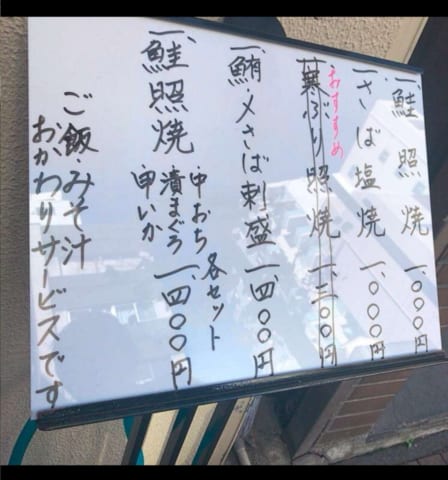 一、鮭照焼 一、〇〇〇円
一、さば塩焼 一、〇〇〇円
おすすめ
一、寒ぶり照焼 一、三〇〇円
一、鮪・〆さば刺盛 一、四〇〇円
一、鮭照焼
・中おち
・漬まぐろ
・甲いか
各セット
一、四〇〇円
ご飯・みそ汁
おかわりサービスです